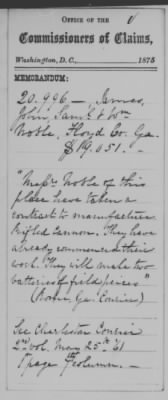 OFFICE OF THE
Commissioners of Claims,
Washington, D. C., 1875
MEMORANDUM:
20.996 — James,
John, Saml & Wm
Noble. Floyd Co. Ga.
$19.051.—
"Messrs Noble of this
place have taken a
contract to manufacture
Rifled Cannon. They have
already commenced their
work. They will make two
batteries of field pieces"
(Rome, Ga. Courier)
See Charleston Courier
2nd vol. May 25th '61
1 page column. —